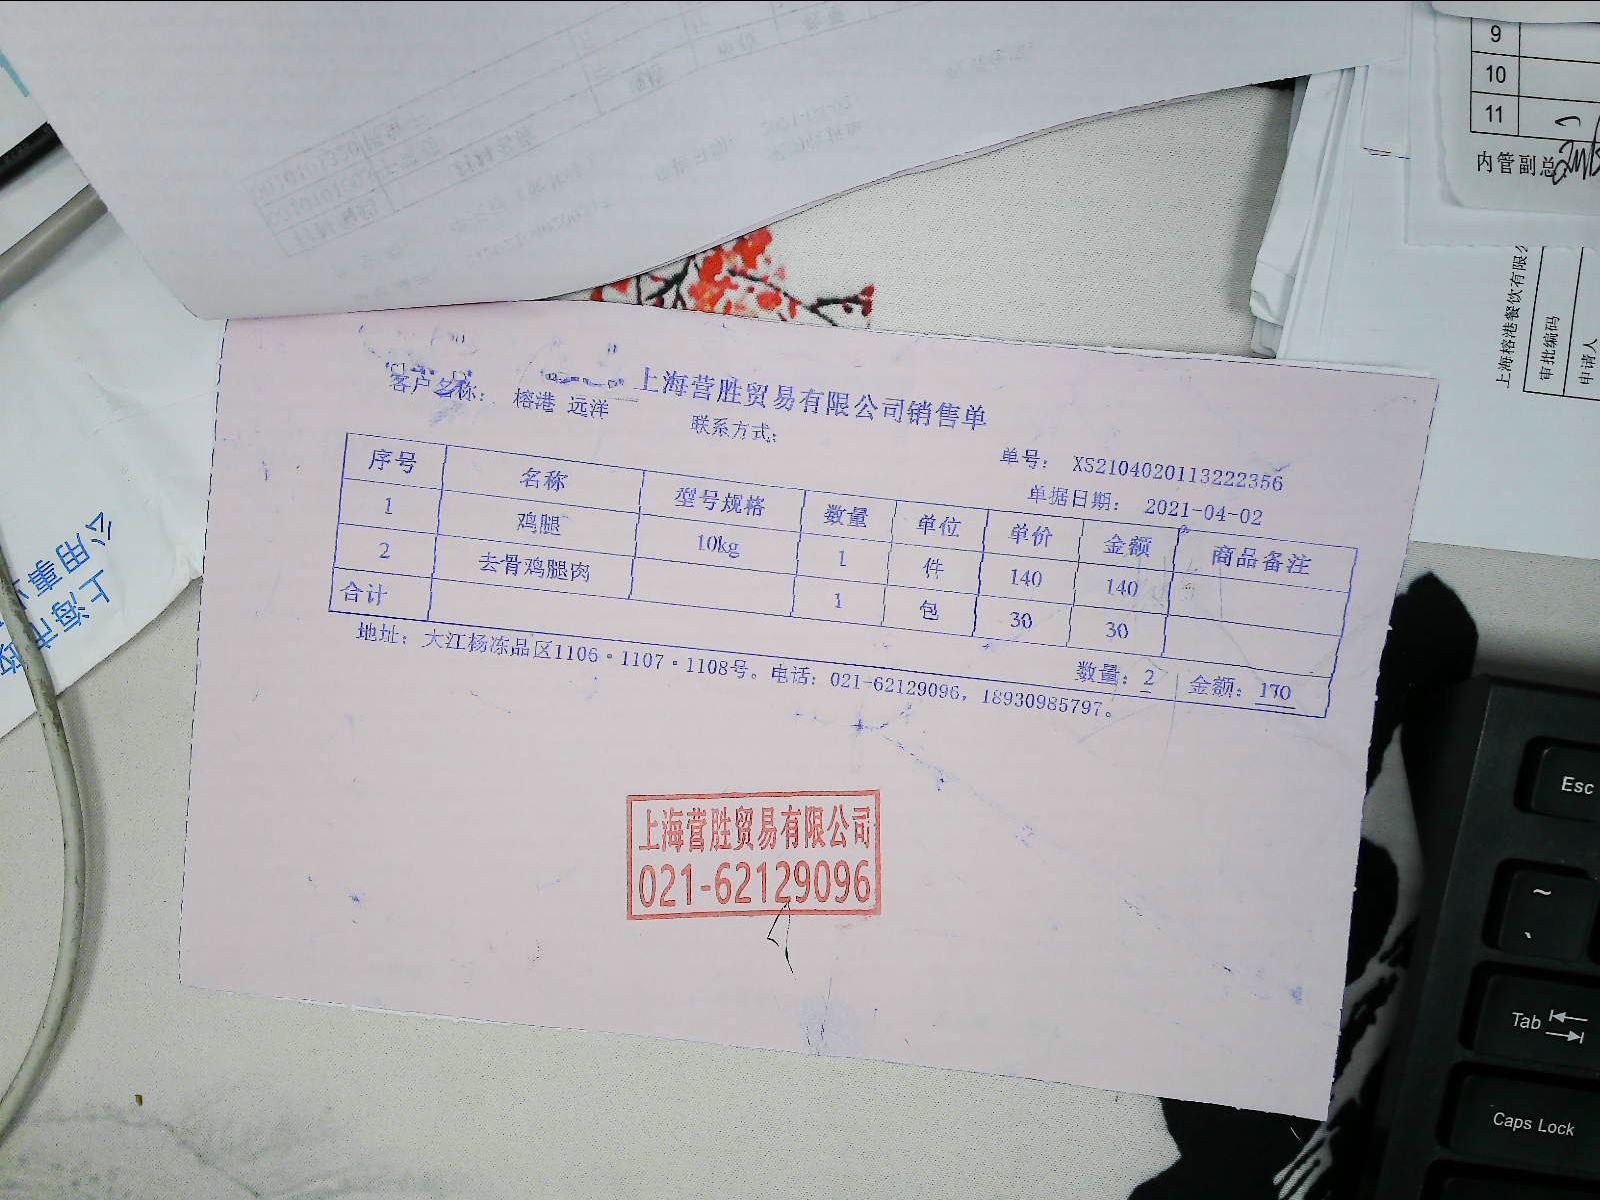 上海营胜贸易有限公司销售单
客户名称： 榕港 远洋
联系方式：
单号： XS2104020113222356
单据日期： 2021-04-02
序号 名称 型号规格 数量 单位 单价 金额 商品备注
1 鸡腿 10kg 1 件 140 140
2 去骨鸡腿肉 1 包 30 30
合计 数量：2 金额：170
地址：大江杨冻品区1106·1107·1108号。电话：021-62129096，18930985797。
上海营胜贸易有限公司
021-62129096
9
10
11
内管副总
上海榕港餐饮有限
审批编码
申请人
上海市政
公用事
Esc
~
Tab
Caps Lock